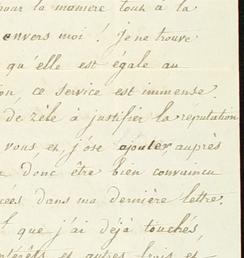 pour la manière tout à la
envers moi ! Je ne trouve
qu'elle est égale au
on, ce service est immense.
de zèle à justifier la réputation
vous, j'ose ajouter, auprès
donc être bien convaincu
cées dans ma dernière lettre.
que j'ai déjà touchés,
intérêts et autres frais et